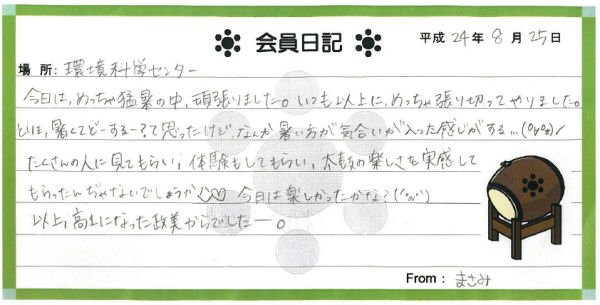 会員日記
平成 24年 8月 25日
場所: 環境科学センター
今日は、めっちゃ猛暑の中、頑張りました。いつも以上に、めっちゃ張り切ってやりました。
とりま、暑くてどーするー?って思ったけど、なんか暑い方が気合いが入った感じがする…(^o^)/
たくさんの人に見てもらい、体験もしてもらい、太鼓の楽しさを実感して
もらったんぢゃないでしょうか 今日は楽しかったかな?(^ω^)
以上、高1になった政美からでしたー。
From: まさみ